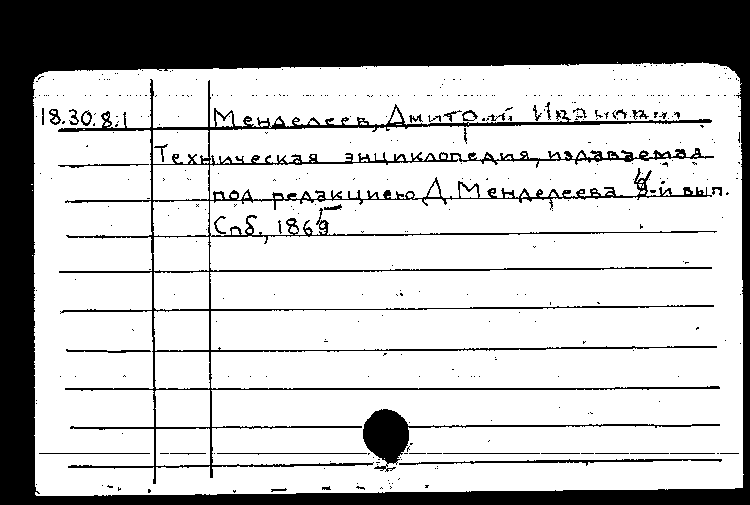 18.30.8.1 Менделеев, Дмитрий Иванович
Техническая энциклопедия, издаваемая
под редакциею Д. Менделеева. 4-й вып.
Спб., 1865